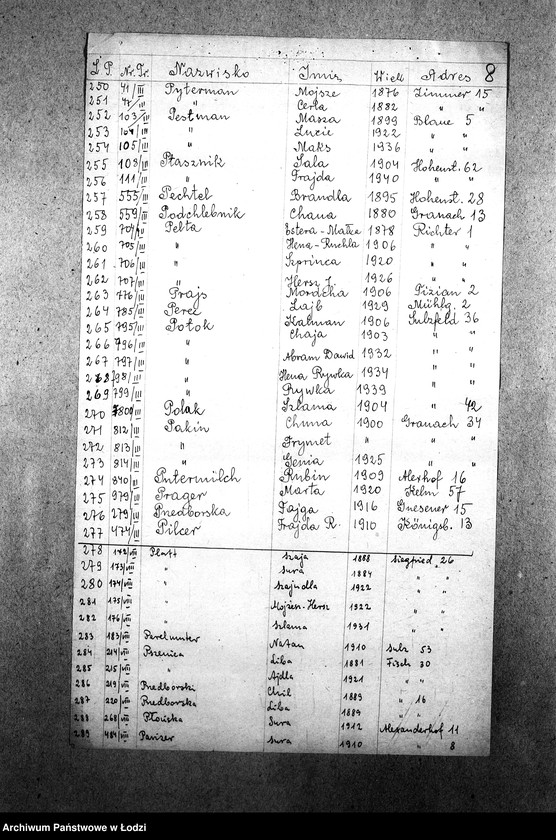 L.P. Nr. Tr. Nazwisko Imię Wiek Adres 8
250 41/III Pyterman Mojsze 1876 Zimmer 15
251 42/III " Cerla 1882 " "
252 103/III Pestman Masza 1899 Blaue 5
253 104/III " Lucie 1922 " "
254 105/III " Maks 1936 " "
255 108/III Ptasznik Sala 1904 Hohenst. 62
256 111/III " Frajda 1940 " "
257 555/III Pechtel Brandla 1895 Hohenst. 28
258 559/III Podchlebnik Chana 1880 Granach 13
259 704/III Pelta Estera-Matka 1878 Richter 1
260 705/III " Hena-Ruchla 1906 " "
261 706/III " Szprinca 1920 " "
262 707/III " Hersz J. 1926 " "
263 776/III Prajs Mordcha 1906 Tizian 2
264 785/III Perec Lajb 1929 Mühlg. 2
265 795/III Potok Kalman 1906 Sulzfeld 36
266 796/III " Chaja 1903 " "
267 797/III " Abram Dawid 1932 " "
268 798/III " Hena Rywka 1934 " "
269 799/III " Rywka 1939 " "
270 7800/III Polak Szlama 1904 " 42
271 812/III Pakin Chuna 1900 Granach 34
272 813/III " Frymet " " "
273 814/III " Genia 1925 " "
274 840/III Putermilch Rubin 1909 Alexhof 16
275 979/III Prager Marta 1920 Kelm 57
276 279/III Pnedborska Fajga 1916 Gnesener 15
277 474/III Pilcer Frajda R. 1910 Königsb. 13
278 172/VIII Platt Szaja 1888 Siegfried 26
279 173/VIII " Sura 1884 " "
280 174/VIII " Szajndla 1922 " "
281 175/VIII " Mojżesz-Hersz 1922 " "
282 176/VIII " Szlama 1931 " "
283 183/VIII Perelmuter Natan 1910 Sulz 53
284 214/VIII Pszenica Liba 1881 Fisch 30
285 215/VIII " Ajdla 1921 " "
286 219/VIII Pnedborski Chil 1889 " 16
287 220/VIII Pnedborska Liba 1889 " "
288 268/VIII Płońska Sura 1912 Alexanderhof 11
289 484/VIII Parizer Sura 1910 " 8
Archiwum Państwowe w Łodzi